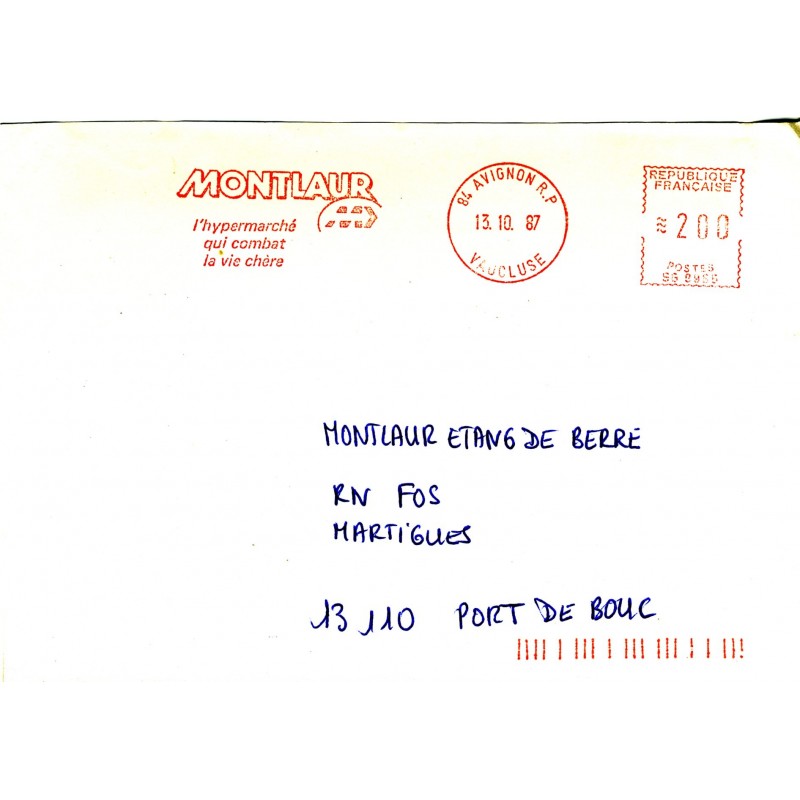 MONTLAUR
l'hypermarché
qui combat
la vie chère
84 AVIGNON R.P
13.10. 87
VAUCLUSE
REPUBLIQUE
FRANÇAISE
≈ 200
POSTES
MONTLAUR ETANG DE BERRE
RN FOS
MARTIGUES
13 110 PORT DE BOUC